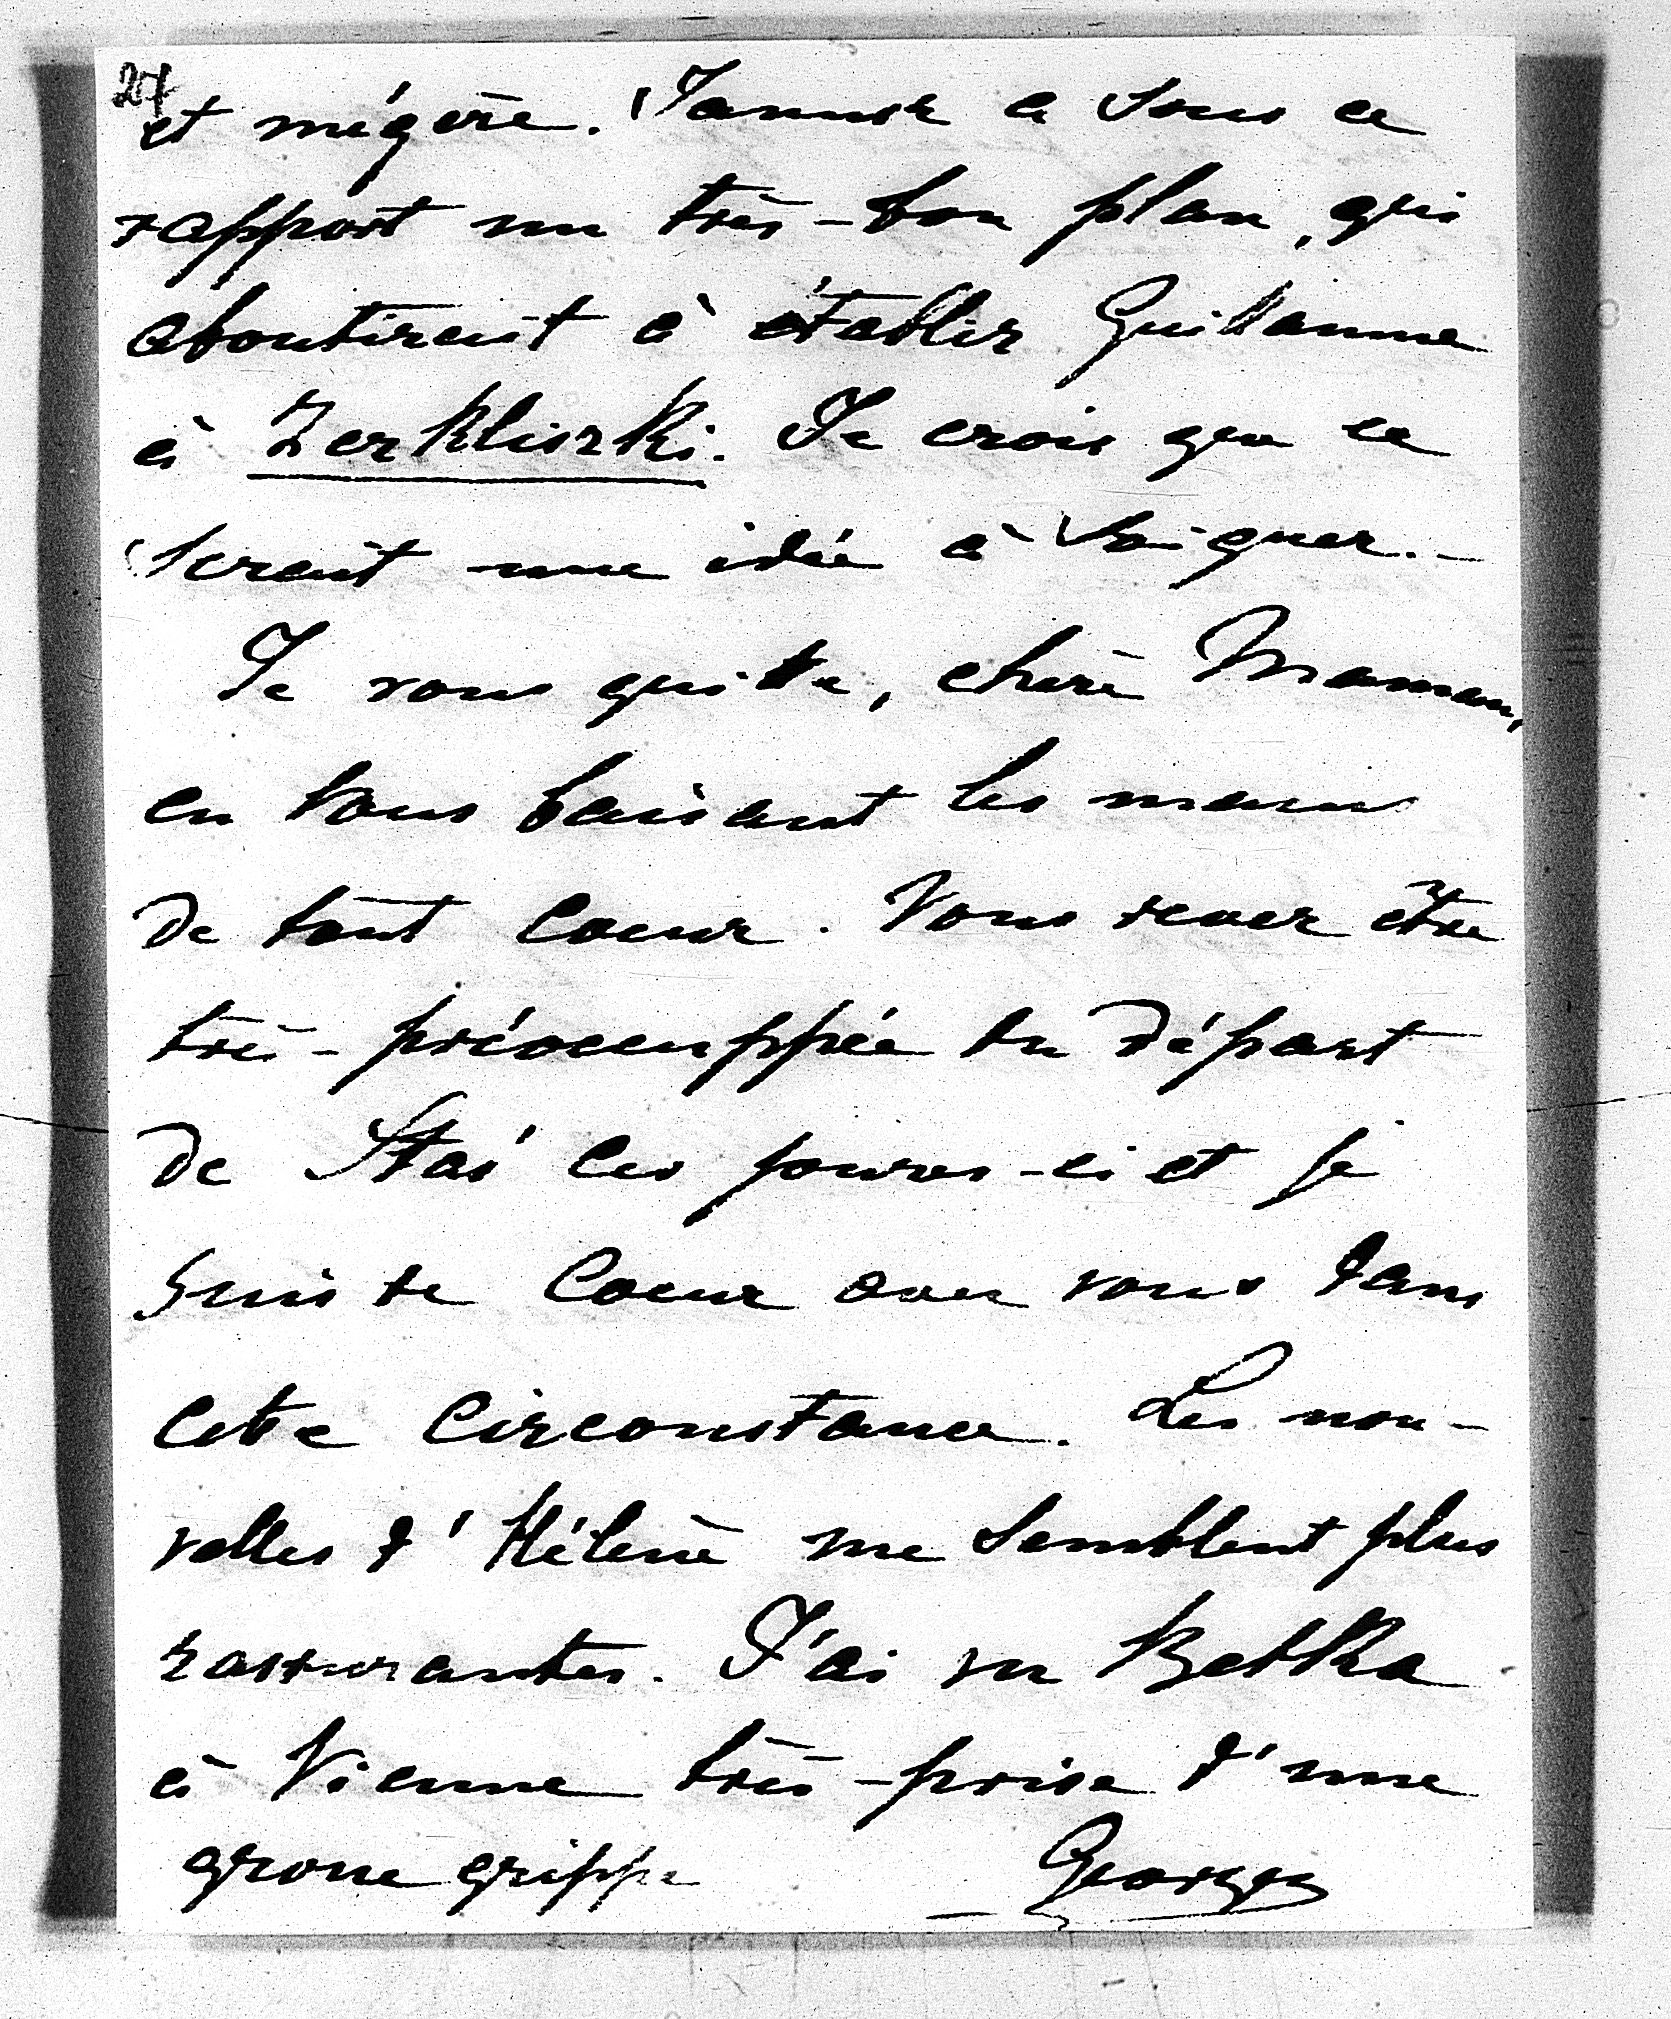 27
et mégère. Janusz a sous ce
rapport un très-bon plan, qui
aboutirait à établir Guillaume
à Zerkliszki. Je crois que ce
serait une idée à soigner.-
Je vous quitte, chère Maman,
en vous baisant les mains
de tout coeur. Vous devez être
très-préoccuppée du départ
de Staś ces jours-ci et je
suis de coeur avec vous dans
cette circonstance. Les nou-
velles d'Hélène me semblent plus
rassurantes. J'ai vu Betka
à Vienne très-prise d'une
grosse grippe
Georges